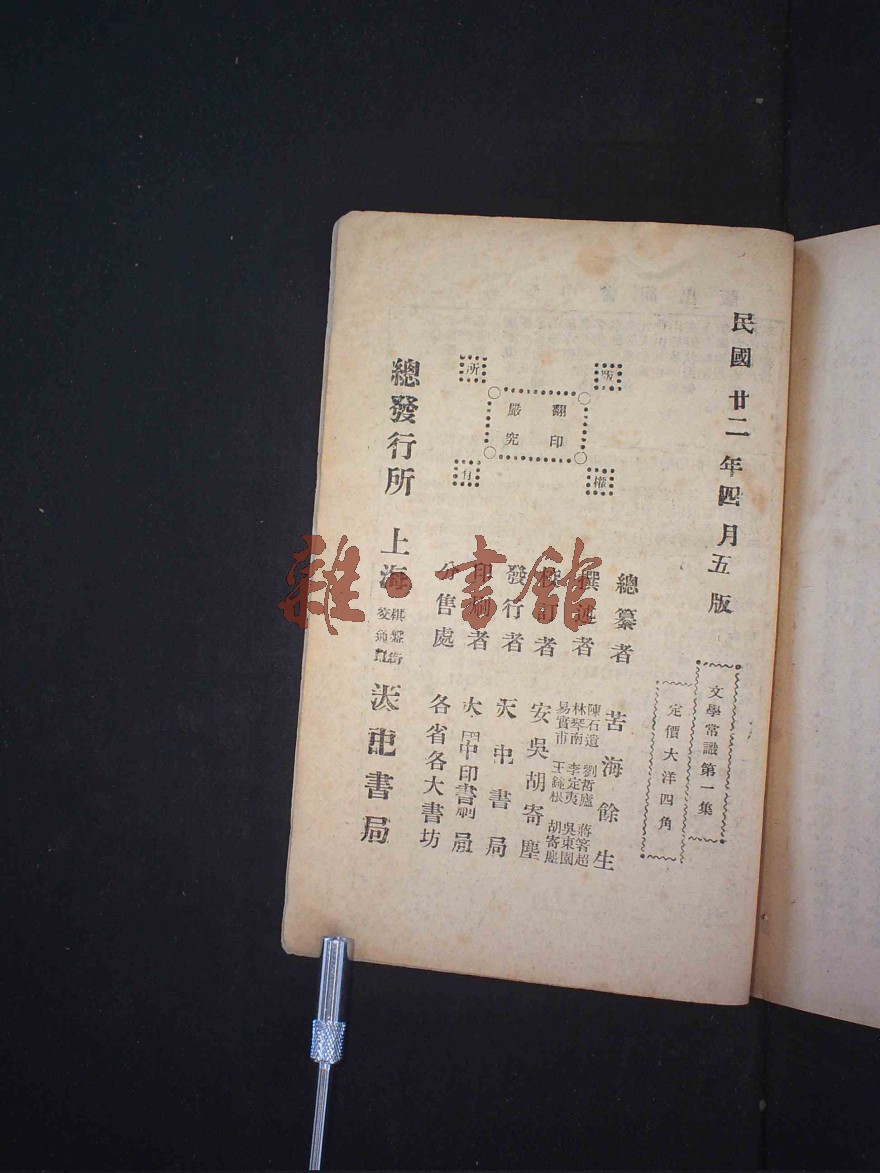 民國廿二年四月五版
文學常識第一集
定價大洋四角
總纂者 苦海餘生
撰述者
陳石遺 劉哲廬 蔣箸超
林琴南 李定夷 吳東園
易實甫 王鈍根 胡寄塵
校訂者 安吳胡寄塵
發行者 書局
印刷者 印書局
分售處 各省各大書坊
版權所有
翻印嚴究
總發行所 上海 棋盤街交通路 書局
雜·書館